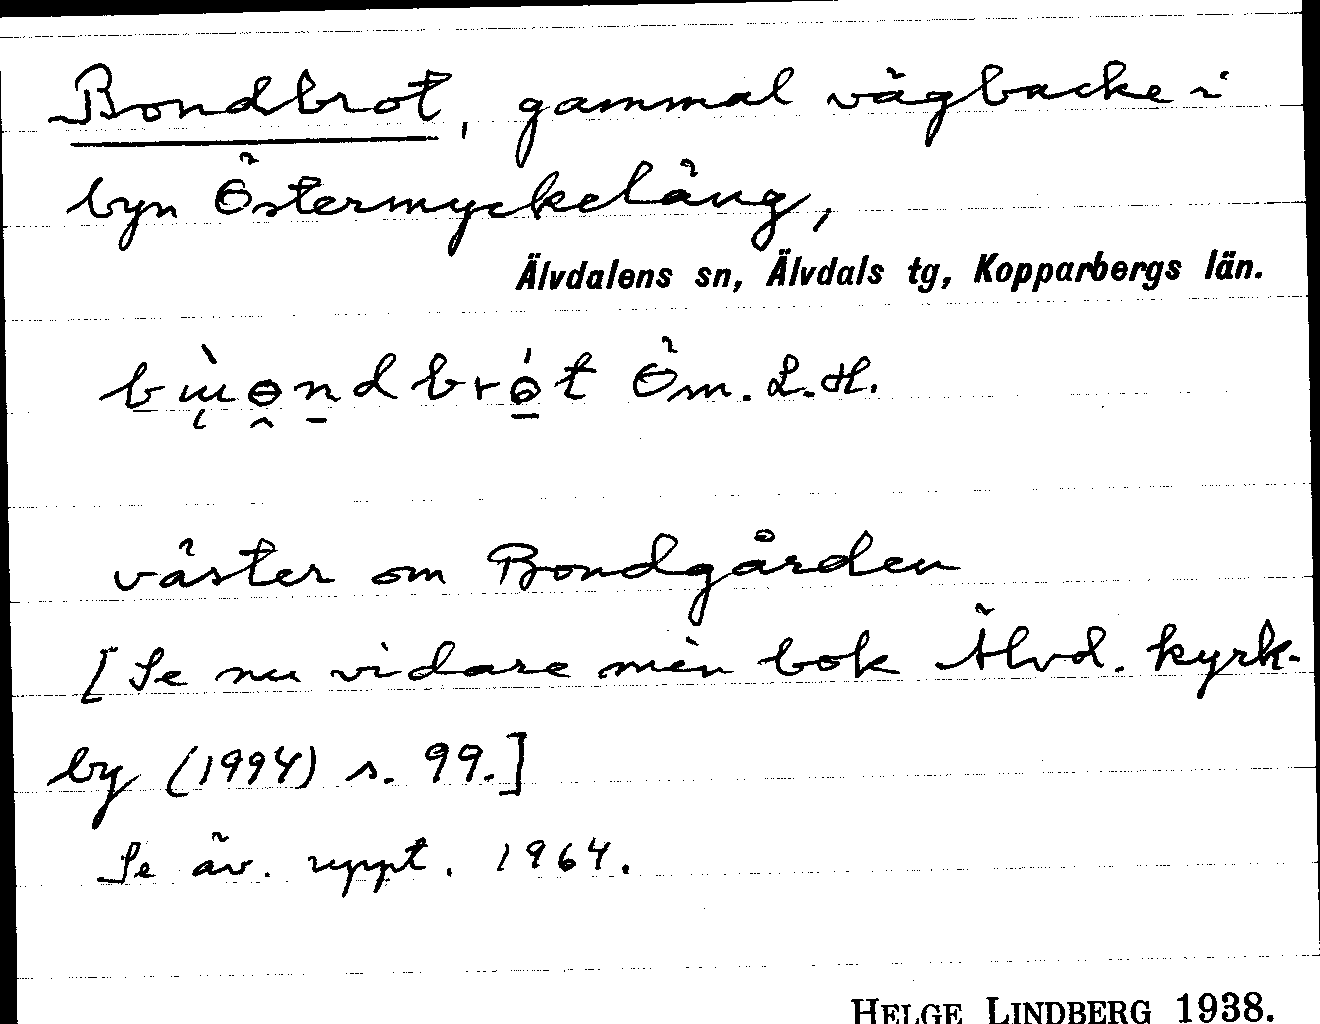 Bondbrot, gammal vägbacke i
byn Östermyckeläng,
Älvdalens sn, Älvdals tg, Kopparbergs län.
Öm. L.H.
väster om Bondgården
[Se nu vidare min bok Älvd. kyrk-
by (1994) s. 99.]
Se äv. uppt. 1964.
HELGE LINDBERG 1938.